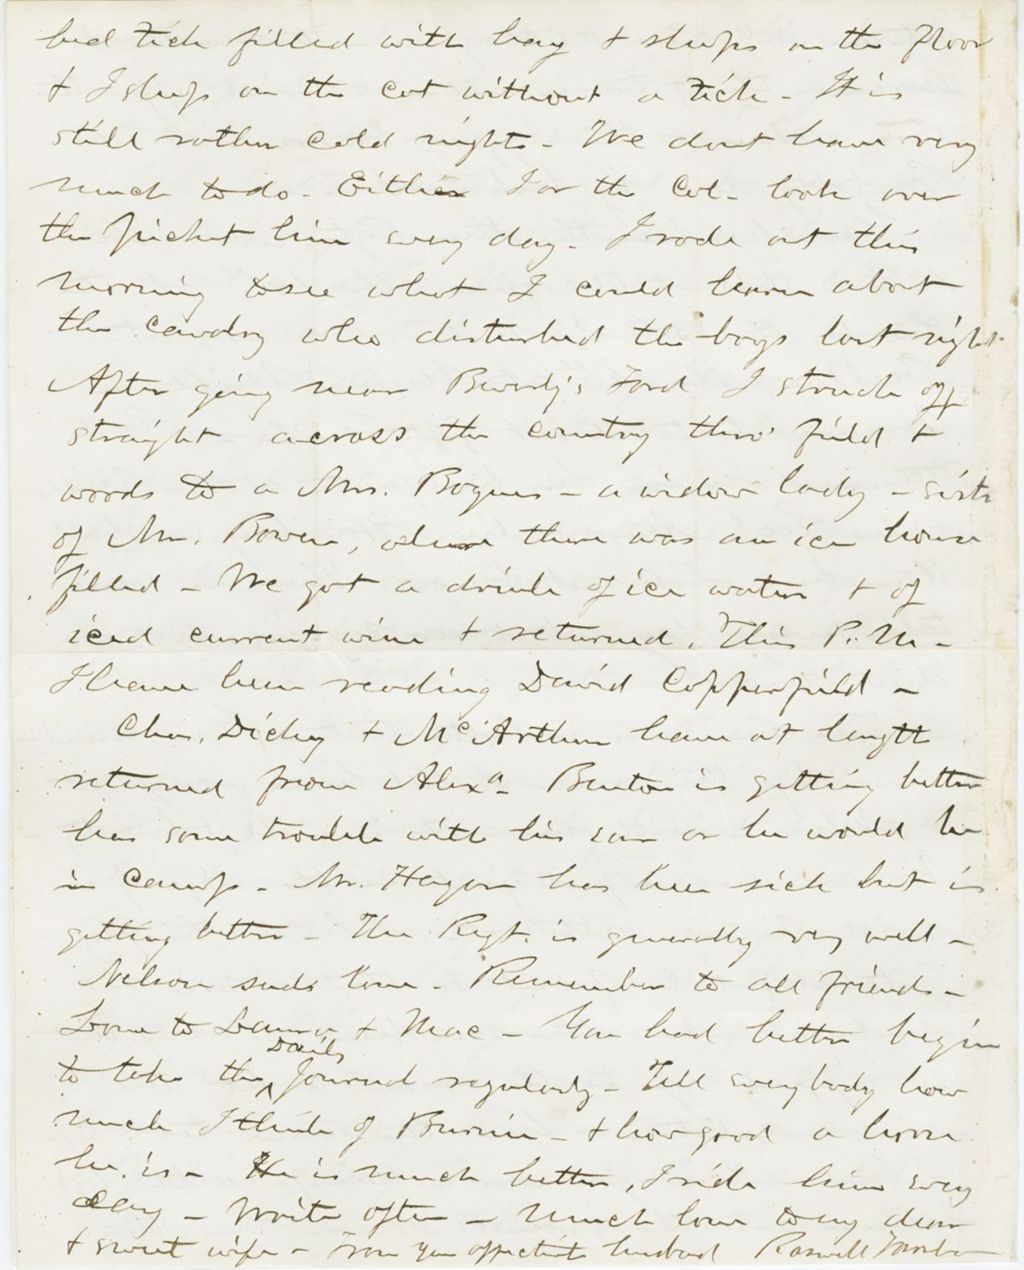 bed tick filled with hay & sleeps on the floor
& I sleep on the cot without a tick - It is
still rather cold nights - We dont have very
much to do - Either I or the Col - look over
the picket line every day - I rode out this
morning to see what I could learn about
the cavalry who disturbed the boys last night
After going near Beverly's Ford I struck off
straight across the country thro' field &
woods to a Mrs. - a widow lady - sister
of Mr. Bowen, where there was an ice house
filled - We got a drink of ice water & of
iced current wine & returned. This P.M -
I have been reading David Copperfield -
Chas. Dickey & McArthur have at length
returned from Alexa - Benton is getting better
has some trouble with his ear or he would be
in camp - Mr. Hagar has been sick but is
getting better - The Regt. is generally very well -
Nelson sends love - Remember to all friends -
Love to Laura & Mac - You had better begin
to take the Daily Journal regularly - Tell everybody how
much I think of - & how good a horse
he is - He is much better, I ride him every
day - Write often - Much love to my dear
& sweet wife - From your affectionate husband Roswell